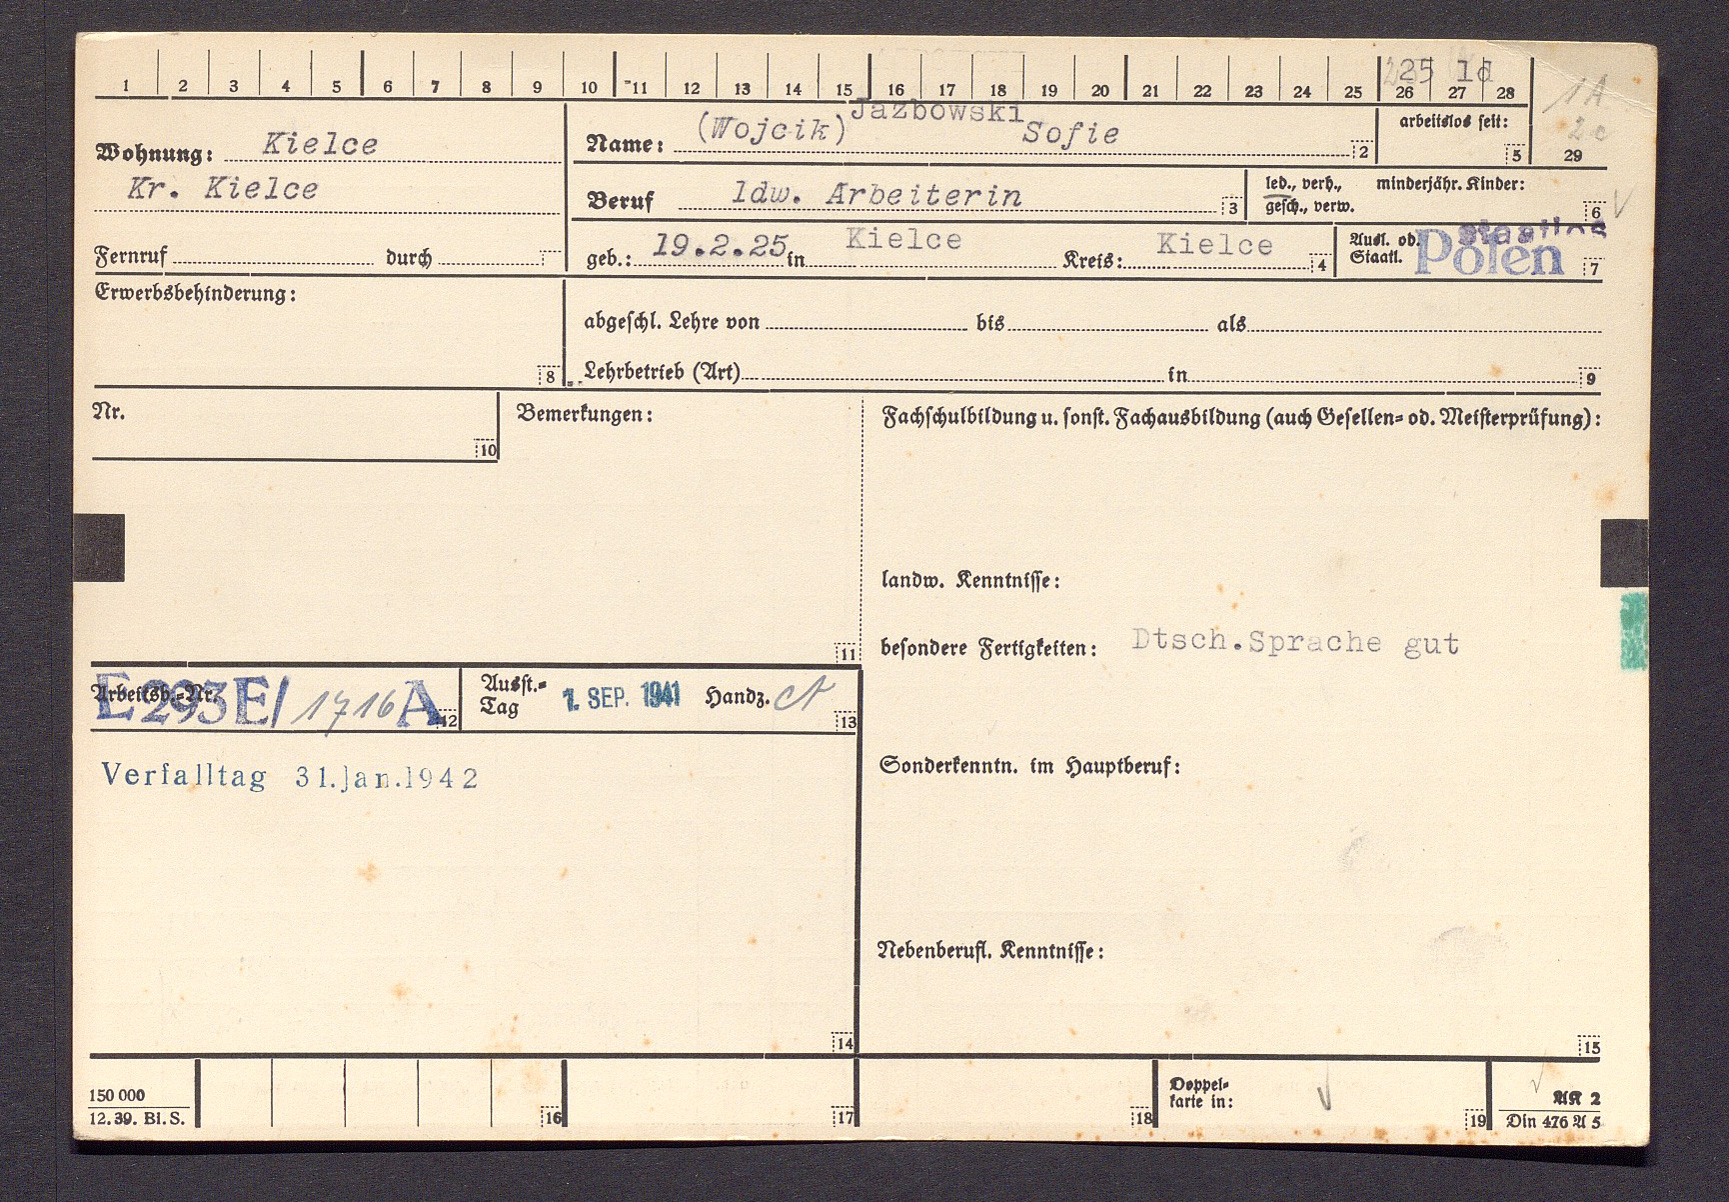 1 2 3 4 5 6 7 8 9 10 11 12 13 14 15 16 17 18 19 20 21 22 23 24 25 26 27 28
1A
2c
29
Wohnung: Kielce
Kr. Kielce
Fernruf durch
Name: (Wojcik) Jazbowski Sofie 2
arbeitslos seit:
5
Beruf ldw. Arbeiterin 3
led., verh., minderjähr. Kinder:
gesch., verw. 6
geb.: 19.2.25 in Kielce Kreis: Kielce 4
Ausl. od. staatlos
Staatl. Polen 7
Erwerbsbehinderung:
8
abgeschl. Lehre von bis als
Lehrbetrieb (Art) in 9
Nr.
10
Bemerkungen:
11
Fachschulbildung u. sonst. Fachausbildung (auch Gesellen- od. Meisterprüfung):
landw. Kenntnisse:
besondere Fertigkeiten: Dtsch.Sprache gut
Arbeitsb.-Nr.
E293E/1716A 12
Ausst.-
Tag 1. SEP. 1941 Handz. 13
Verfalltag 31.Jan.1942
14
Sonderkenntn. im Hauptberuf:
Nebenberufl. Kenntnisse:
15
150 000
12. 39. Bl. S.
16 17 18
Doppel-
karte in: 19
AK 2
Din 476 A 5